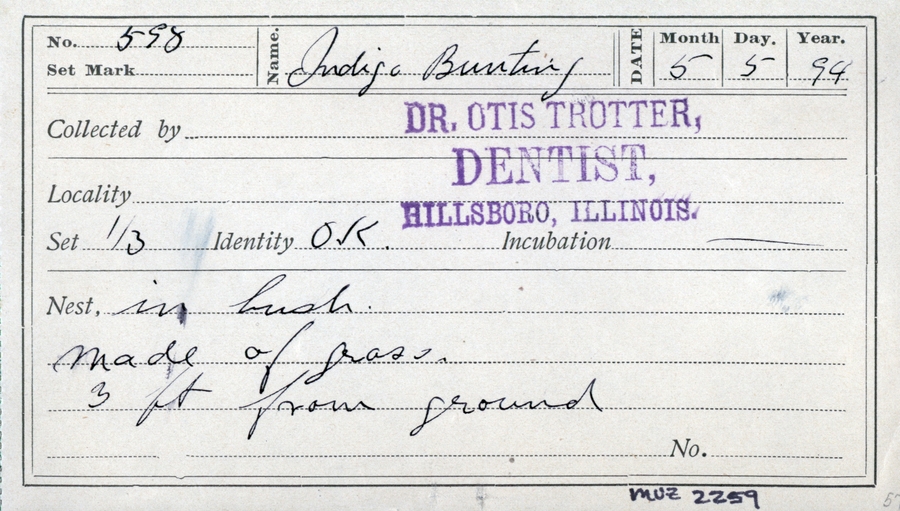 No. 598
Set Mark
Name. Indigo Bunting
DATE Month Day. Year.
5 5 94
Collected by DR. OTIS TROTTER,
DENTIST,
Locality HILLSBORO, ILLINOIS.
Set 1/3 Identity OK. Incubation
Nest, in bush.
made of grass.
3 ft from ground
No.
MVZ 2259